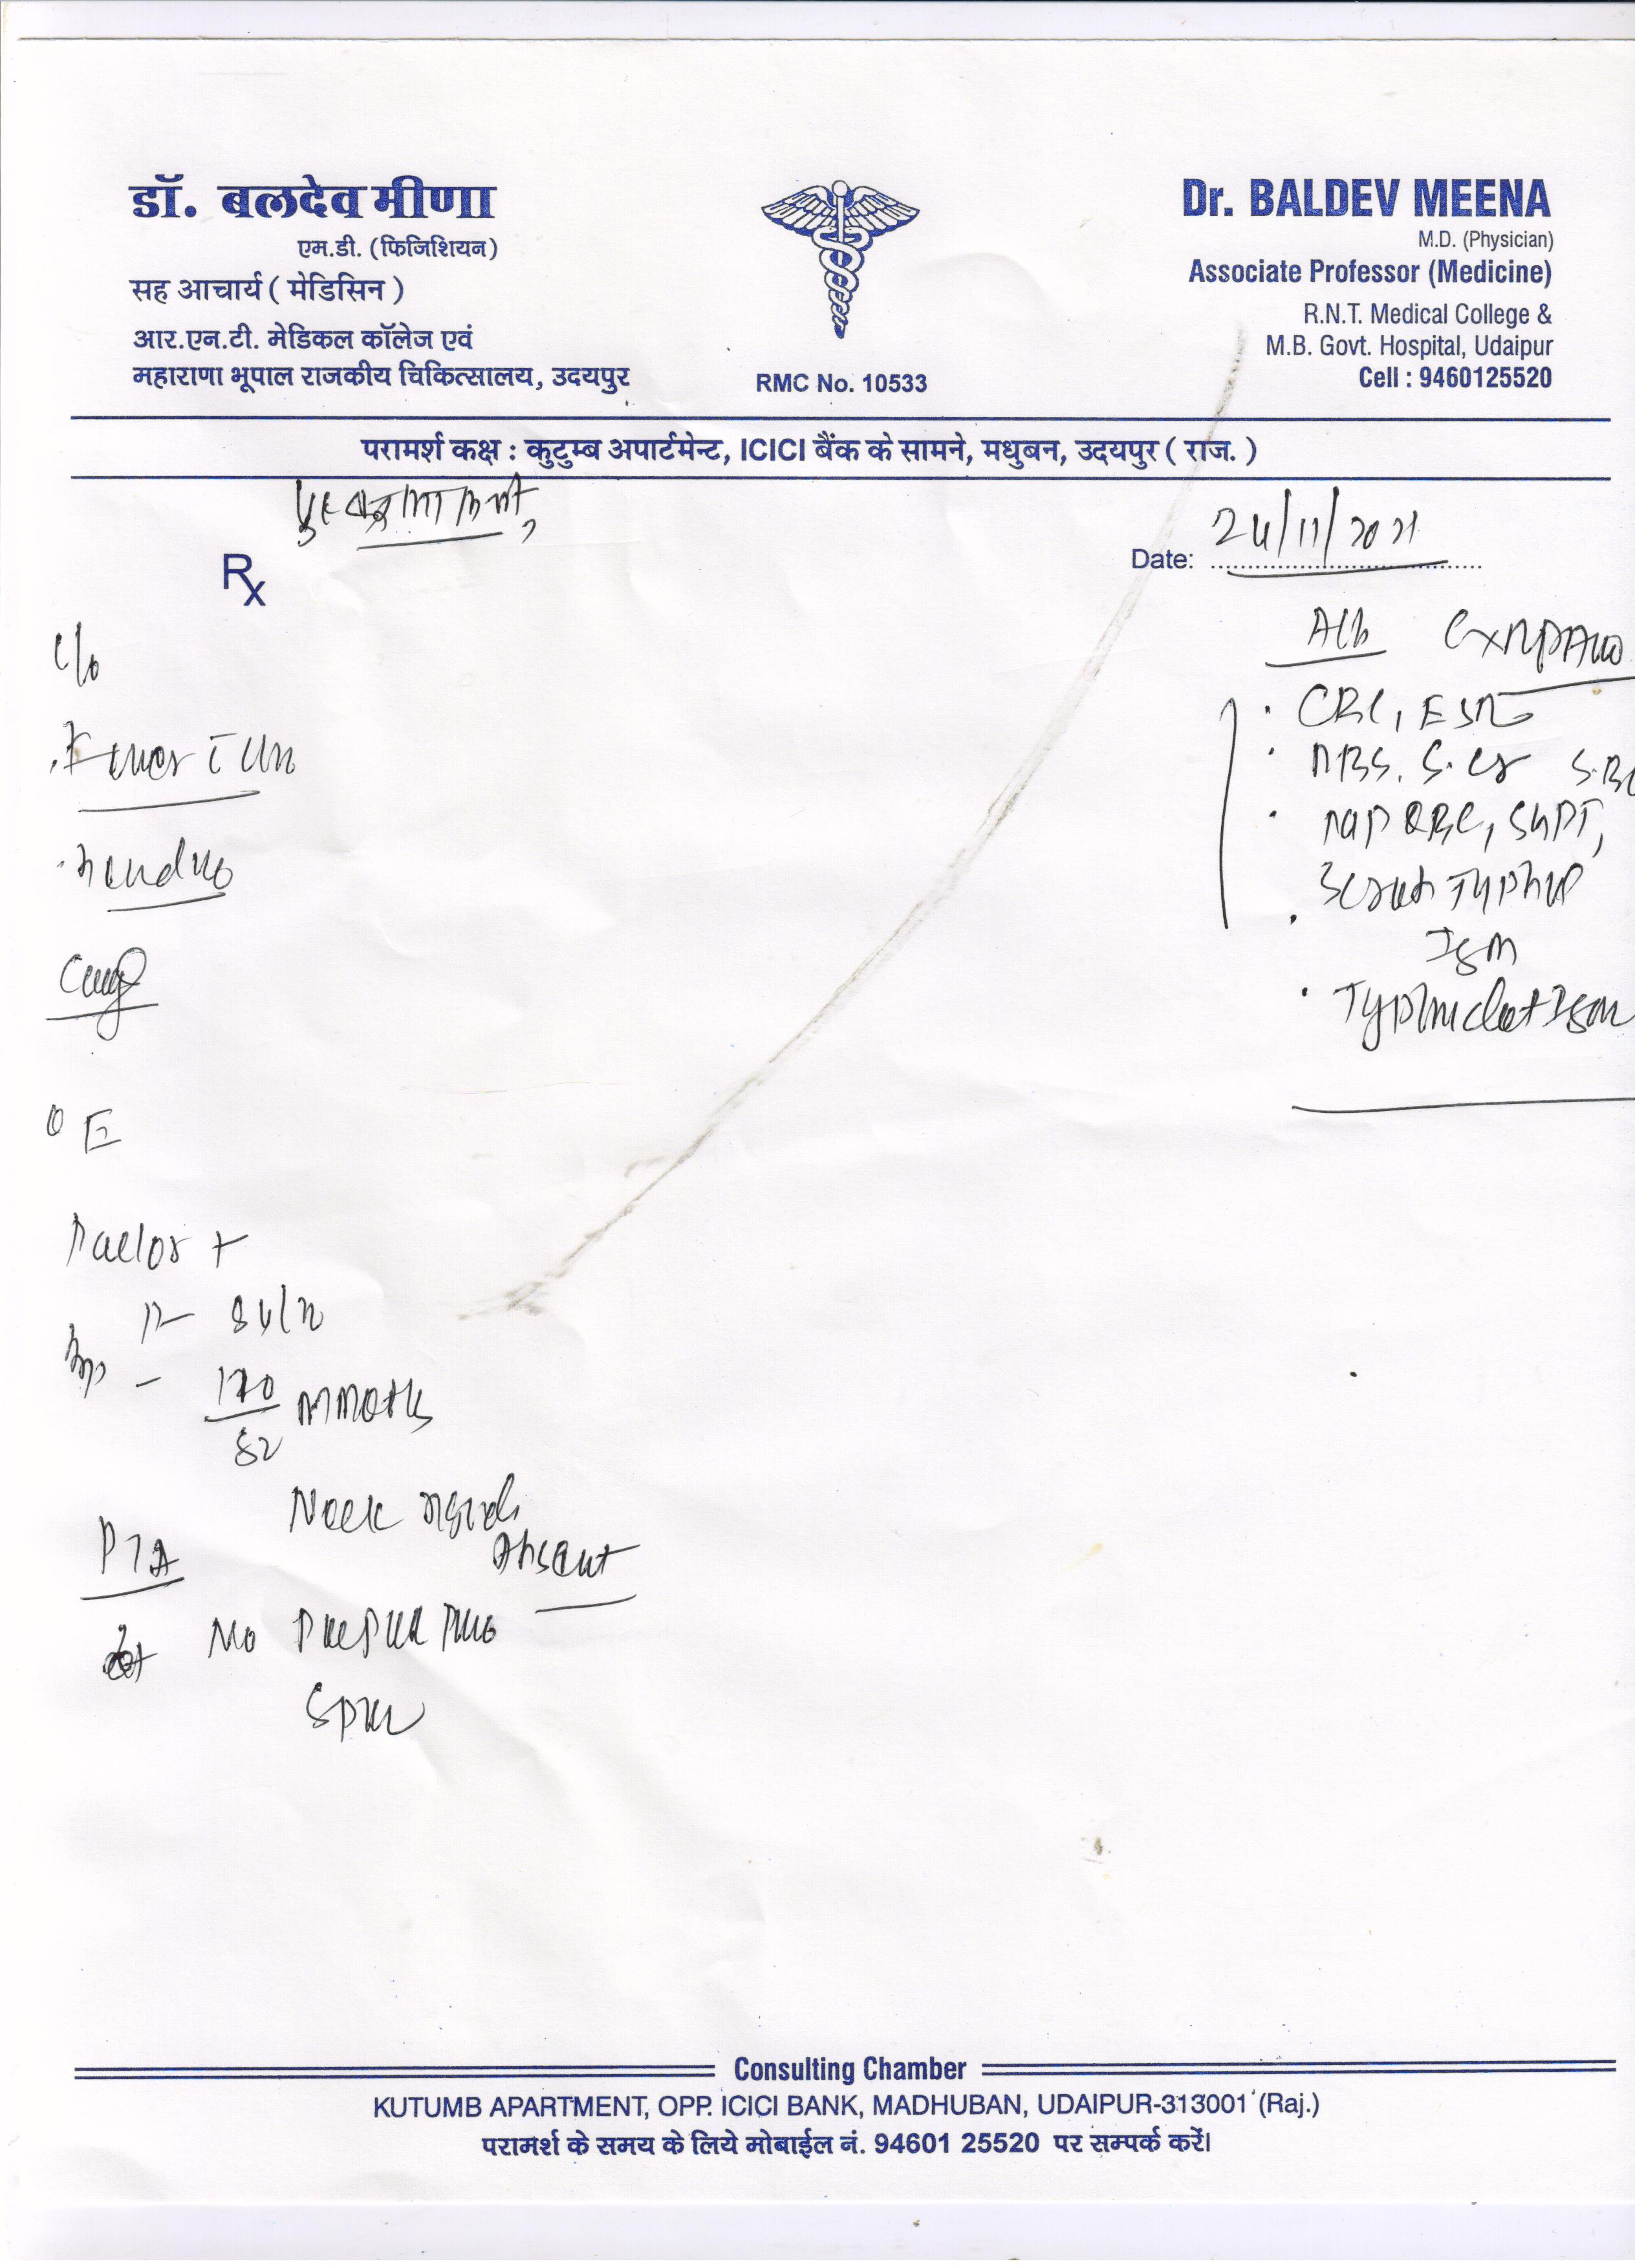 डॉ. बलदेव मीणा
एम.डी. (फिजिशियन)
सह आचार्य ( मेडिसिन )
आर.एन.टी. मेडिकल कॉलेज एवं
महाराणा भूपाल राजकीय चिकित्सालय, उदयपुर
RMC No. 10533
Dr. BALDEV MEENA
M.D. (Physician)
Associate Professor (Medicine)
R.N.T. Medical College &
M.B. Govt. Hospital, Udaipur
Cell : 9460125520
परामर्श कक्ष : कुटुम्ब अपार्टमेन्ट, ICICI बैंक के सामने, मधुबन, उदयपुर ( राज. )
Date: 24/11/2021
Rx
C/o
Fever
Cough
O E
Pallor +
P- 84/m
BP - 120/82 mmHg
Neck
Absent
P/A
No
CBC, ESR
RBS, S. Cr
MP QBC, SGPT,
Scrub Typhus
IgM
Typhidot IgM
Consulting Chamber
KUTUMB APARTMENT, OPP. ICICI BANK, MADHUBAN, UDAIPUR-313001 (Raj.)
परामर्श के समय के लिये मोबाईल नं. 94601 25520 पर सम्पर्क करें।